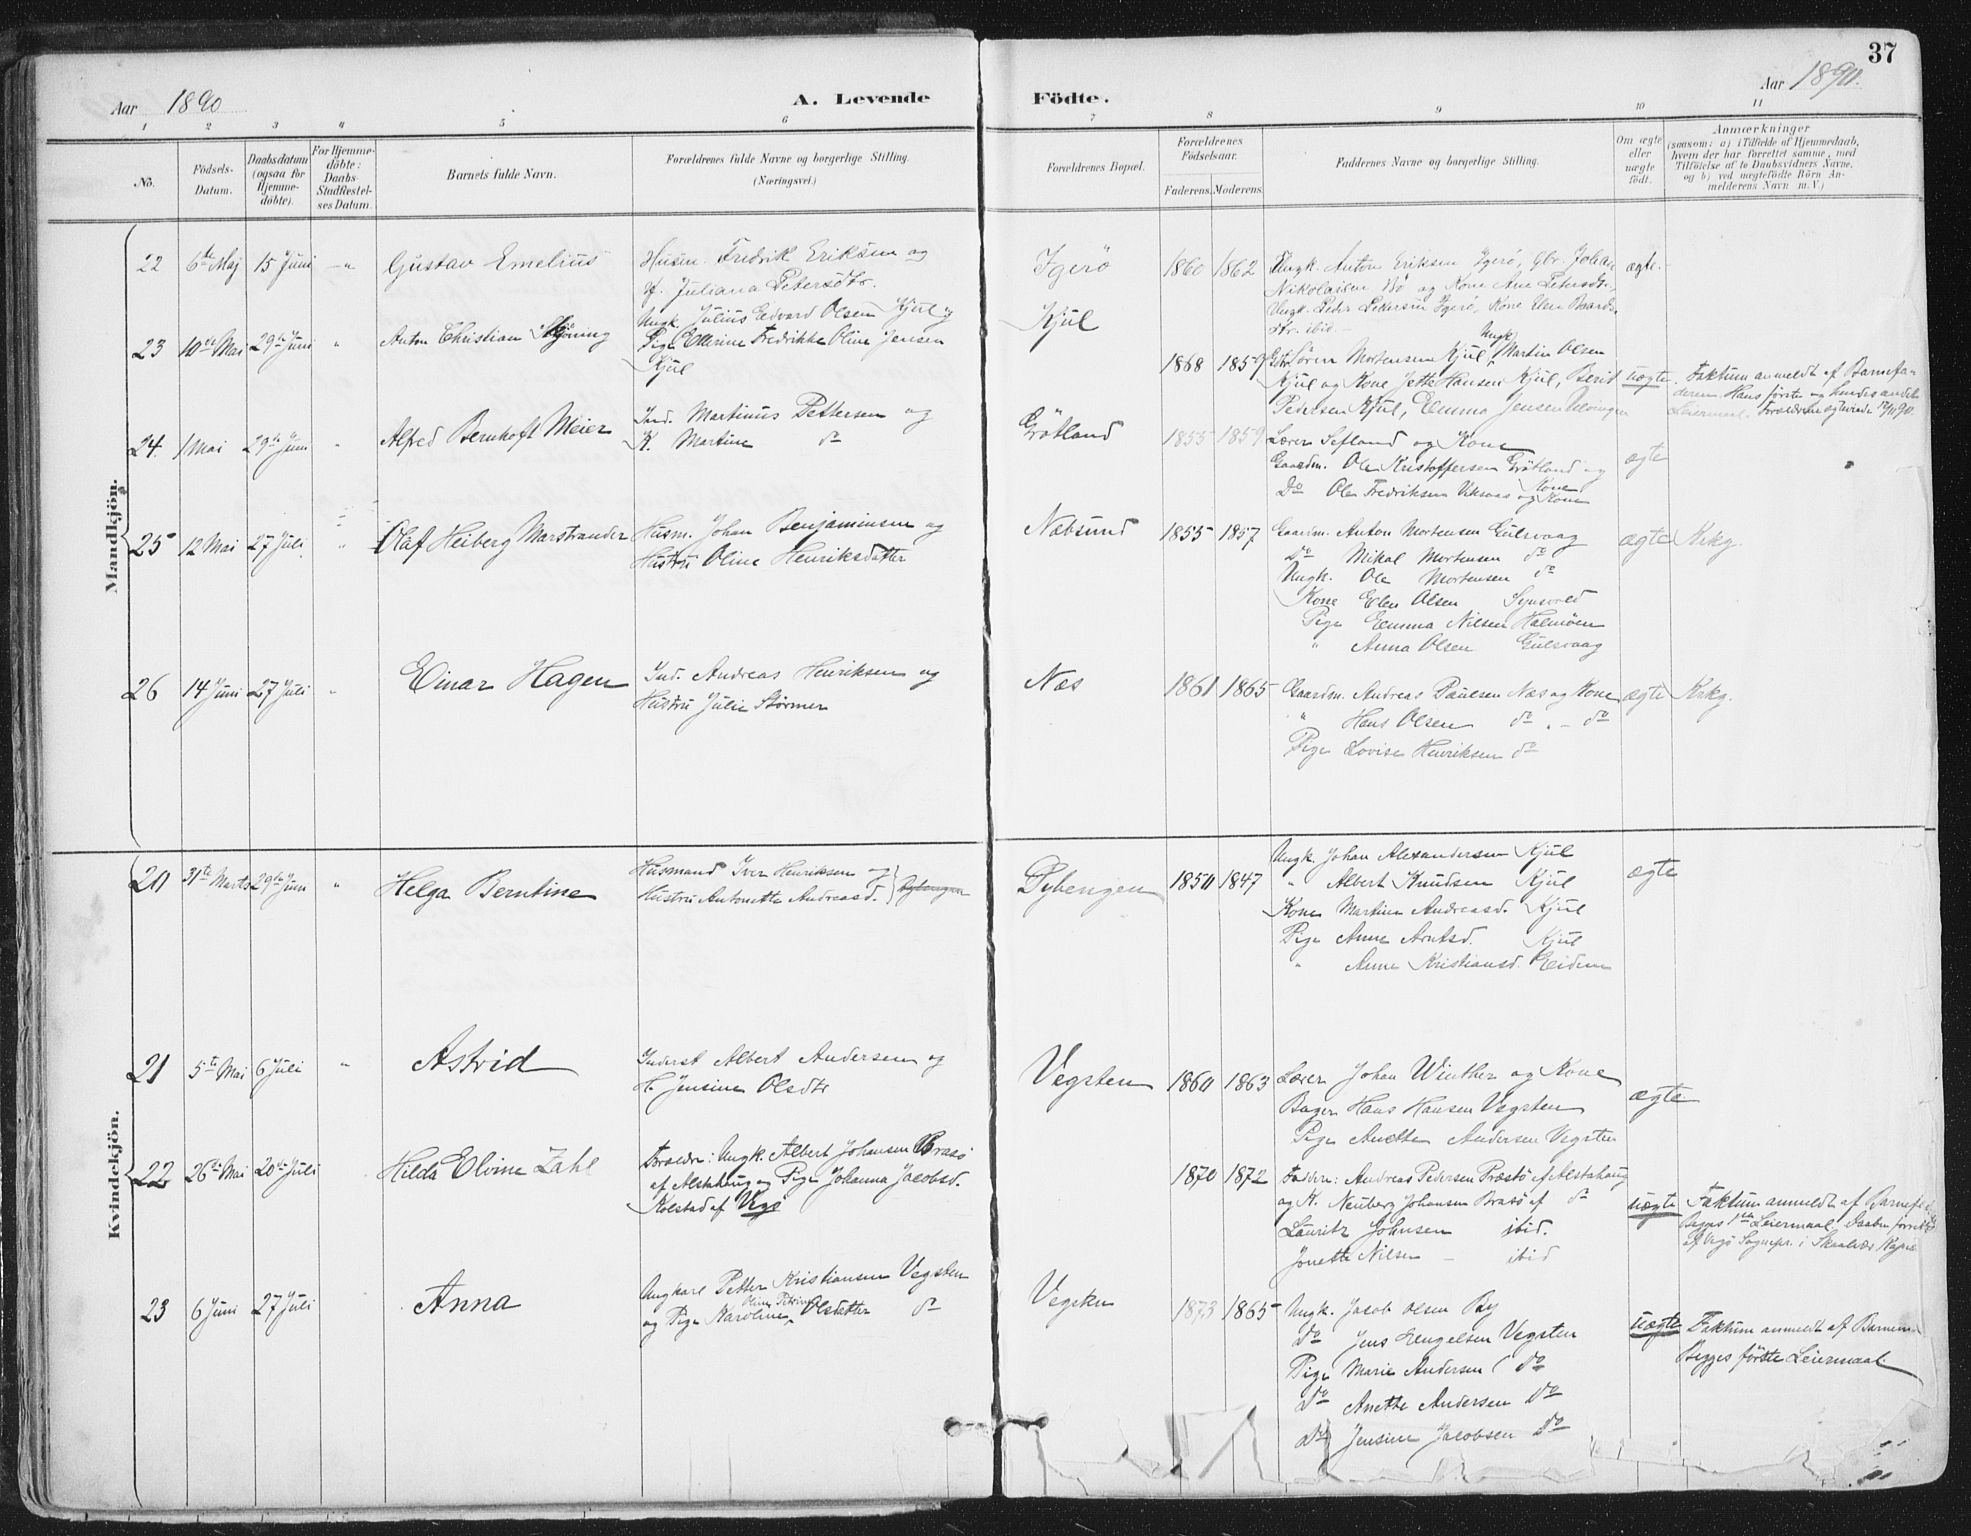 37
Aar 1890
A. Levende Födte.
Aar 1890.
1 2 3 4 5 6 7 8 9 10 11
No.
Födsels-Datum.
Daabsdatum (ogsaa for Hjemme-döbte).
For Hjemme-döbte: Daabs-Stadfæstel-ses Datum.
Barnets fulde Navn.
Forældrenes fulde Navne og borgerlige Stilling.
(Næringsvei.)
Forældrenes Bopæl.
Forældrenes Födselsaar.
Faderens. Moderens.
Faddernes Navne og borgerlige Stilling.
Om ægte eller uægte födt.
Anmærkninger
(saasom: a) i Tilfælde af Hjemmedaab,
hvem der har forrettet samme, med
Tilföielse af to Daabsvidners Navne,
og b) ved uægtefödte Börn An-
melderens Navn m. V.)
Mandkjön.
22 6te Maj 15 Juni - " Gustav Emelius
Husm. Fredrik Eriksen og
H. Juliana Petersdtr.
Igerö 1860 1862
Ungk. Anton Eriksen Igerö, Gbr. Johan
Nikolaisen Bö og Kone Ane Petersdtr.
Ungk. Peder Pedersen Igerö, Kone Elen Baards
dtr. ibid. -
ægte. -
23 10de Mai 29de Juni " Anton Christian Skjöning
Ungk. Julius Edvard Olsen Kjul og
Pige Ellerine Fredrikke Oline Jensen
Kjul
Kjul 1868 1859
Gbr. Sören Mortensen Kjul, Ungk. Martin Olsen
Kjul og Kone Jette Hansen Kjul, Berit
Pedersen Kjul, Emma Jensen
uægte.
Faktum anmeldt af Barnefa-
deren. Hans første og hendes andet
Leiermaal. Forældrene ægteviede
24. 1 Mai 29de Juni " Alfred Bernhoft Meier
Ind. Martinus Pettersen og
K. Martine do
Grötland 1855 1859
Lærer Sefland og Kone
Gaardm. Ole Kristoffersen Grötland og Kone
Do Ole Fredriksen og Kone
ægte
25 12 Mai 27 Juli " Olaf Heiberg Marstrander
Husm. Johan Benjaminsen og
Hustru Oline Henriksdatter
Nabsund 1855 1857
Gaardm. Anton Mortensen Gulsvaag
Do Mikal Mortensen do
Ungk. Ole Mortensen do
Kone Elen Olsen
Pige Emma Nilsen Halmöen
" Anna Olsen Gulsvaag
ægte Krkg.
26 14 Juni 27 Juli " Einar Hagen
Ind. Andreas Henriksen og
Hustru Julie Størmer
Næs 1861 1865
Gaardm. Andreas Paulsen Næs og Kone
" Hans Olsen do. - do
Pige Lovise Henriksen do
ægte Krkg.
Kvindekjön.
20 31te Marts 29de Juni " Helga Berntine
Husmand Iver Henriksen og
Hustru Antonette Andreasd. Dybengen
Dybengen 1850 1847
Ungk. Johan Alexandersen Kjul
" Albert Knudsen Kjul
Kone Martine Andreasd. Kjul
Pige Anne Arntsd. Kjul
" Anne Kristiansd. Eidem
ægte
21 5te Mai 6 Juli " Astrid
Inderst Albert Andersen og
H. Jensine Olsdtr
Vegsten 1860 1863
Lærer Johan Winther og Kone
Bager Hans Hansen Vegsten
Pige Anette Andersen Vegsten
ægte
22 26de Mai 20de Juli Hilda Elvine Zahl
Foreldre: Ungk. Albert Johansen Brasö
af Alstahaug og Pige Johanna Jacobsd.
Kolstad af Vegö
1870 1872
Faddere: Andreas Pedersen Præstö af Alstahaug
og K. Neuberg Johansen Brasö af do
Lauritz Johnsen ibid.
Jonette Nilsen - ibid
uægte
Faktum anmeldt af Barnef
Begges 1ste Leiermaal. Daaben forrettet
af Vegö Sognepr. i Skaalvær Kapel
23 6 Juni 27 Juli Anna
Ungkarl Petter Kristiansen Vegsten
og Pige Karoline Oline Petrine Olsdatter do
Vegsten 1873 1865
Ungk. Jacob Olsen By
Do Jens Engelsen Vegsten
Pige Marie Andersen do
Do Anette Andersen Do
Do Jensine Jacobsen Do
uægte
Faktum anmeldt af Barnem
Begges første Leiermaal.